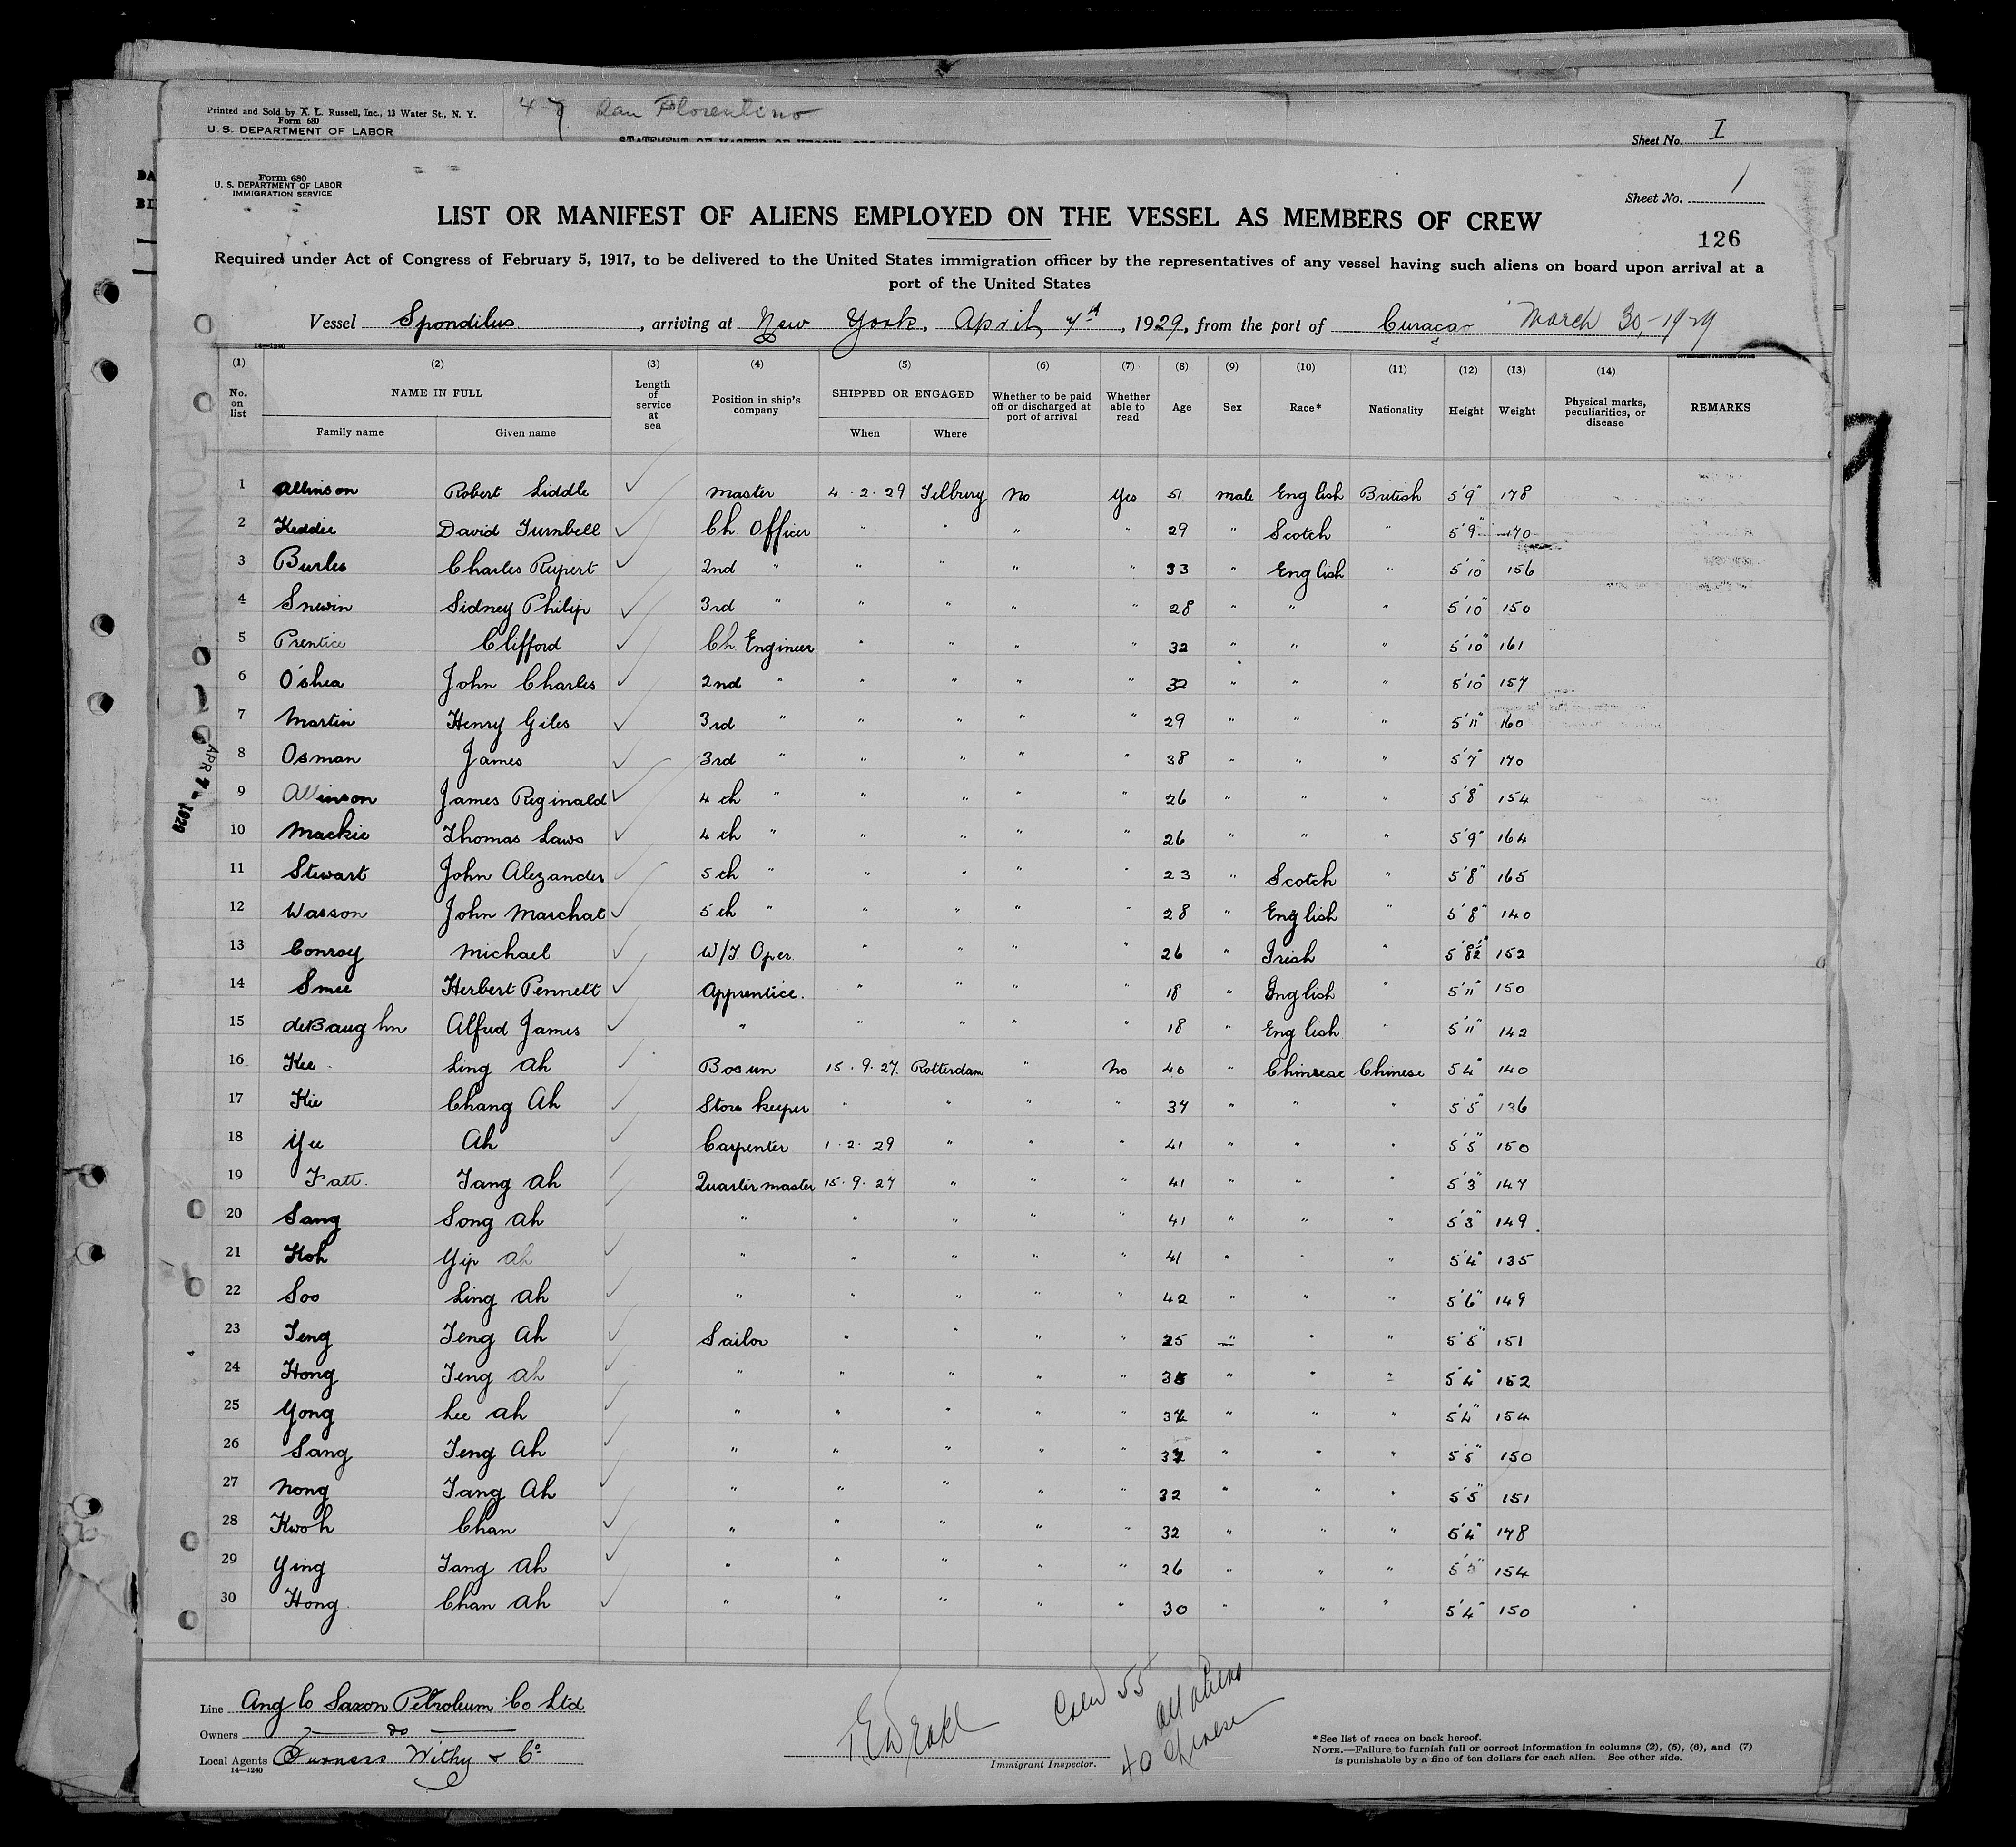 Printed and Sold by A. L. Russell, Inc., 13 Water St., N. Y.
Form 680
U. S. DEPARTMENT OF LABOR
4-7 San Florentino
Sheet No. I
Form 680
U. S. DEPARTMENT OF LABOR
IMMIGRATION SERVICE
Sheet No. 1
LIST OR MANIFEST OF ALIENS EMPLOYED ON THE VESSEL AS MEMBERS OF CREW
126
Required under Act of Congress of February 5, 1917, to be delivered to the United States immigration officer by the representatives of any vessel having such aliens on board upon arrival at a
port of the United States
Vessel Spondilus, arriving at New York, April 7th, 1929, from the port of Curacao March 30, 1929
14—1240
(1) (2) (3) (4) (5) (6) (7) (8) (9) (10) (11) (12) (13) (14)
No. on list NAME IN FULL Length of service at sea Position in ship's company SHIPPED OR ENGAGED Whether to be paid off or discharged at port of arrival Whether able to read Age Sex Race* Nationality Height Weight Physical marks, peculiarities, or disease REMARKS
Family name Given name When Where
1 Allinson Robert Liddle ✓ Master 4.2.29 Tilbury No Yes 51 male English British 5'9" 178
2 Keddie David Turnbell ✓ Ch. Officer " " " " 29 " Scotch " 5'9" 170
3 Burles Charles Rupert ✓ 2nd " " " " " 33 " English " 5'10" 156
4 Snewin Sidney Philip ✓ 3rd " " " " " 28 " " " 5'10" 150
5 Prentice Clifford ✓ Ch. Engineer " " " " 32 " " " 5'10" 161
6 O'shea John Charles ✓ 2nd " " " " " 32 " " " 5'10" 157
7 Martin Henry Giles ✓ 3rd " " " " " 29 " " " 5'11" 160
8 Osman James ✓ 3rd " " " " " 38 " " " 5'7" 170
9 Allinson James Reginald ✓ 4th " " " " " 26 " " " 5'8" 154
10 Mackie Thomas Laws ✓ 4th " " " " " 26 " " " 5'9" 164
11 Stewart John Alexander ✓ 5th " " " " " 23 " Scotch " 5'8" 165
12 Wasson John Marchat ✓ 5th " " " " " 28 " English " 5'8" 140
13 Conroy Michael ✓ W./T. Oper. " " " " 26 " Irish " 5'8½" 152
14 Smee Herbert Pennett ✓ Apprentice. " " " " 18 " English " 5'11" 150
15 deBaughn Alfred James ✓ " " " " " 18 " English " 5'11" 142
16 Kee Ling Ah ✓ Bosun 15.9.27. Rotterdam " No 40 " Chinese Chinese 5'4" 140
17 Kie Chang Ah ✓ Store keeper " " " " 37 " " " 5'5" 136
18 Yee Ah ✓ Carpenter 1.2.29 " " " 41 " " " 5'5" 150
19 Fatt. Tang Ah ✓ Quartermaster 15.9.27 " " " 41 " " " 5'3" 147
20 Sang Song Ah ✓ " " " " " 41 " " " 5'3" 149
21 Koh Yip Ah ✓ " " " " " 41 " " " 5'4" 135
22 Soo Ling Ah ✓ " " " " " 42 " " " 5'6" 149
23 Teng Teng Ah ✓ Sailor " " " " 25 " " " 5'5" 151
24 Hong Teng Ah ✓ " " " " " " " " 5'4" 152
25 Yong Lee Ah ✓ " " " " " " " " 5'4" 154
26 Sang Teng Ah ✓ " " " " " " " " 5'5" 150
27 Nong Tang Ah ✓ " " " " " 32 " " " 5'5" 151
28 Kwoh Chan ✓ " " " " " 32 " " " 5'4" 178
29 Ying Tang Ah ✓ " " " " " 26 " " " 5'5" 154
30 Hong Chan Ah ✓ " " " " " 30 " " " 5'4" 150
SPONDILUS
APR 7 - 1929
Line Anglo Saxon Petroleum Co Ltd
Owners do
Local Agents Furness Withy & Co
14—1240
Immigrant Inspector.
Crew 55
all aliens
40 Chinese
*See list of races on back hereof.
NOTE.—Failure to furnish full or correct information in columns (2), (5), (6), and (7)
is punishable by a fine of ten dollars for each alien. See other side.